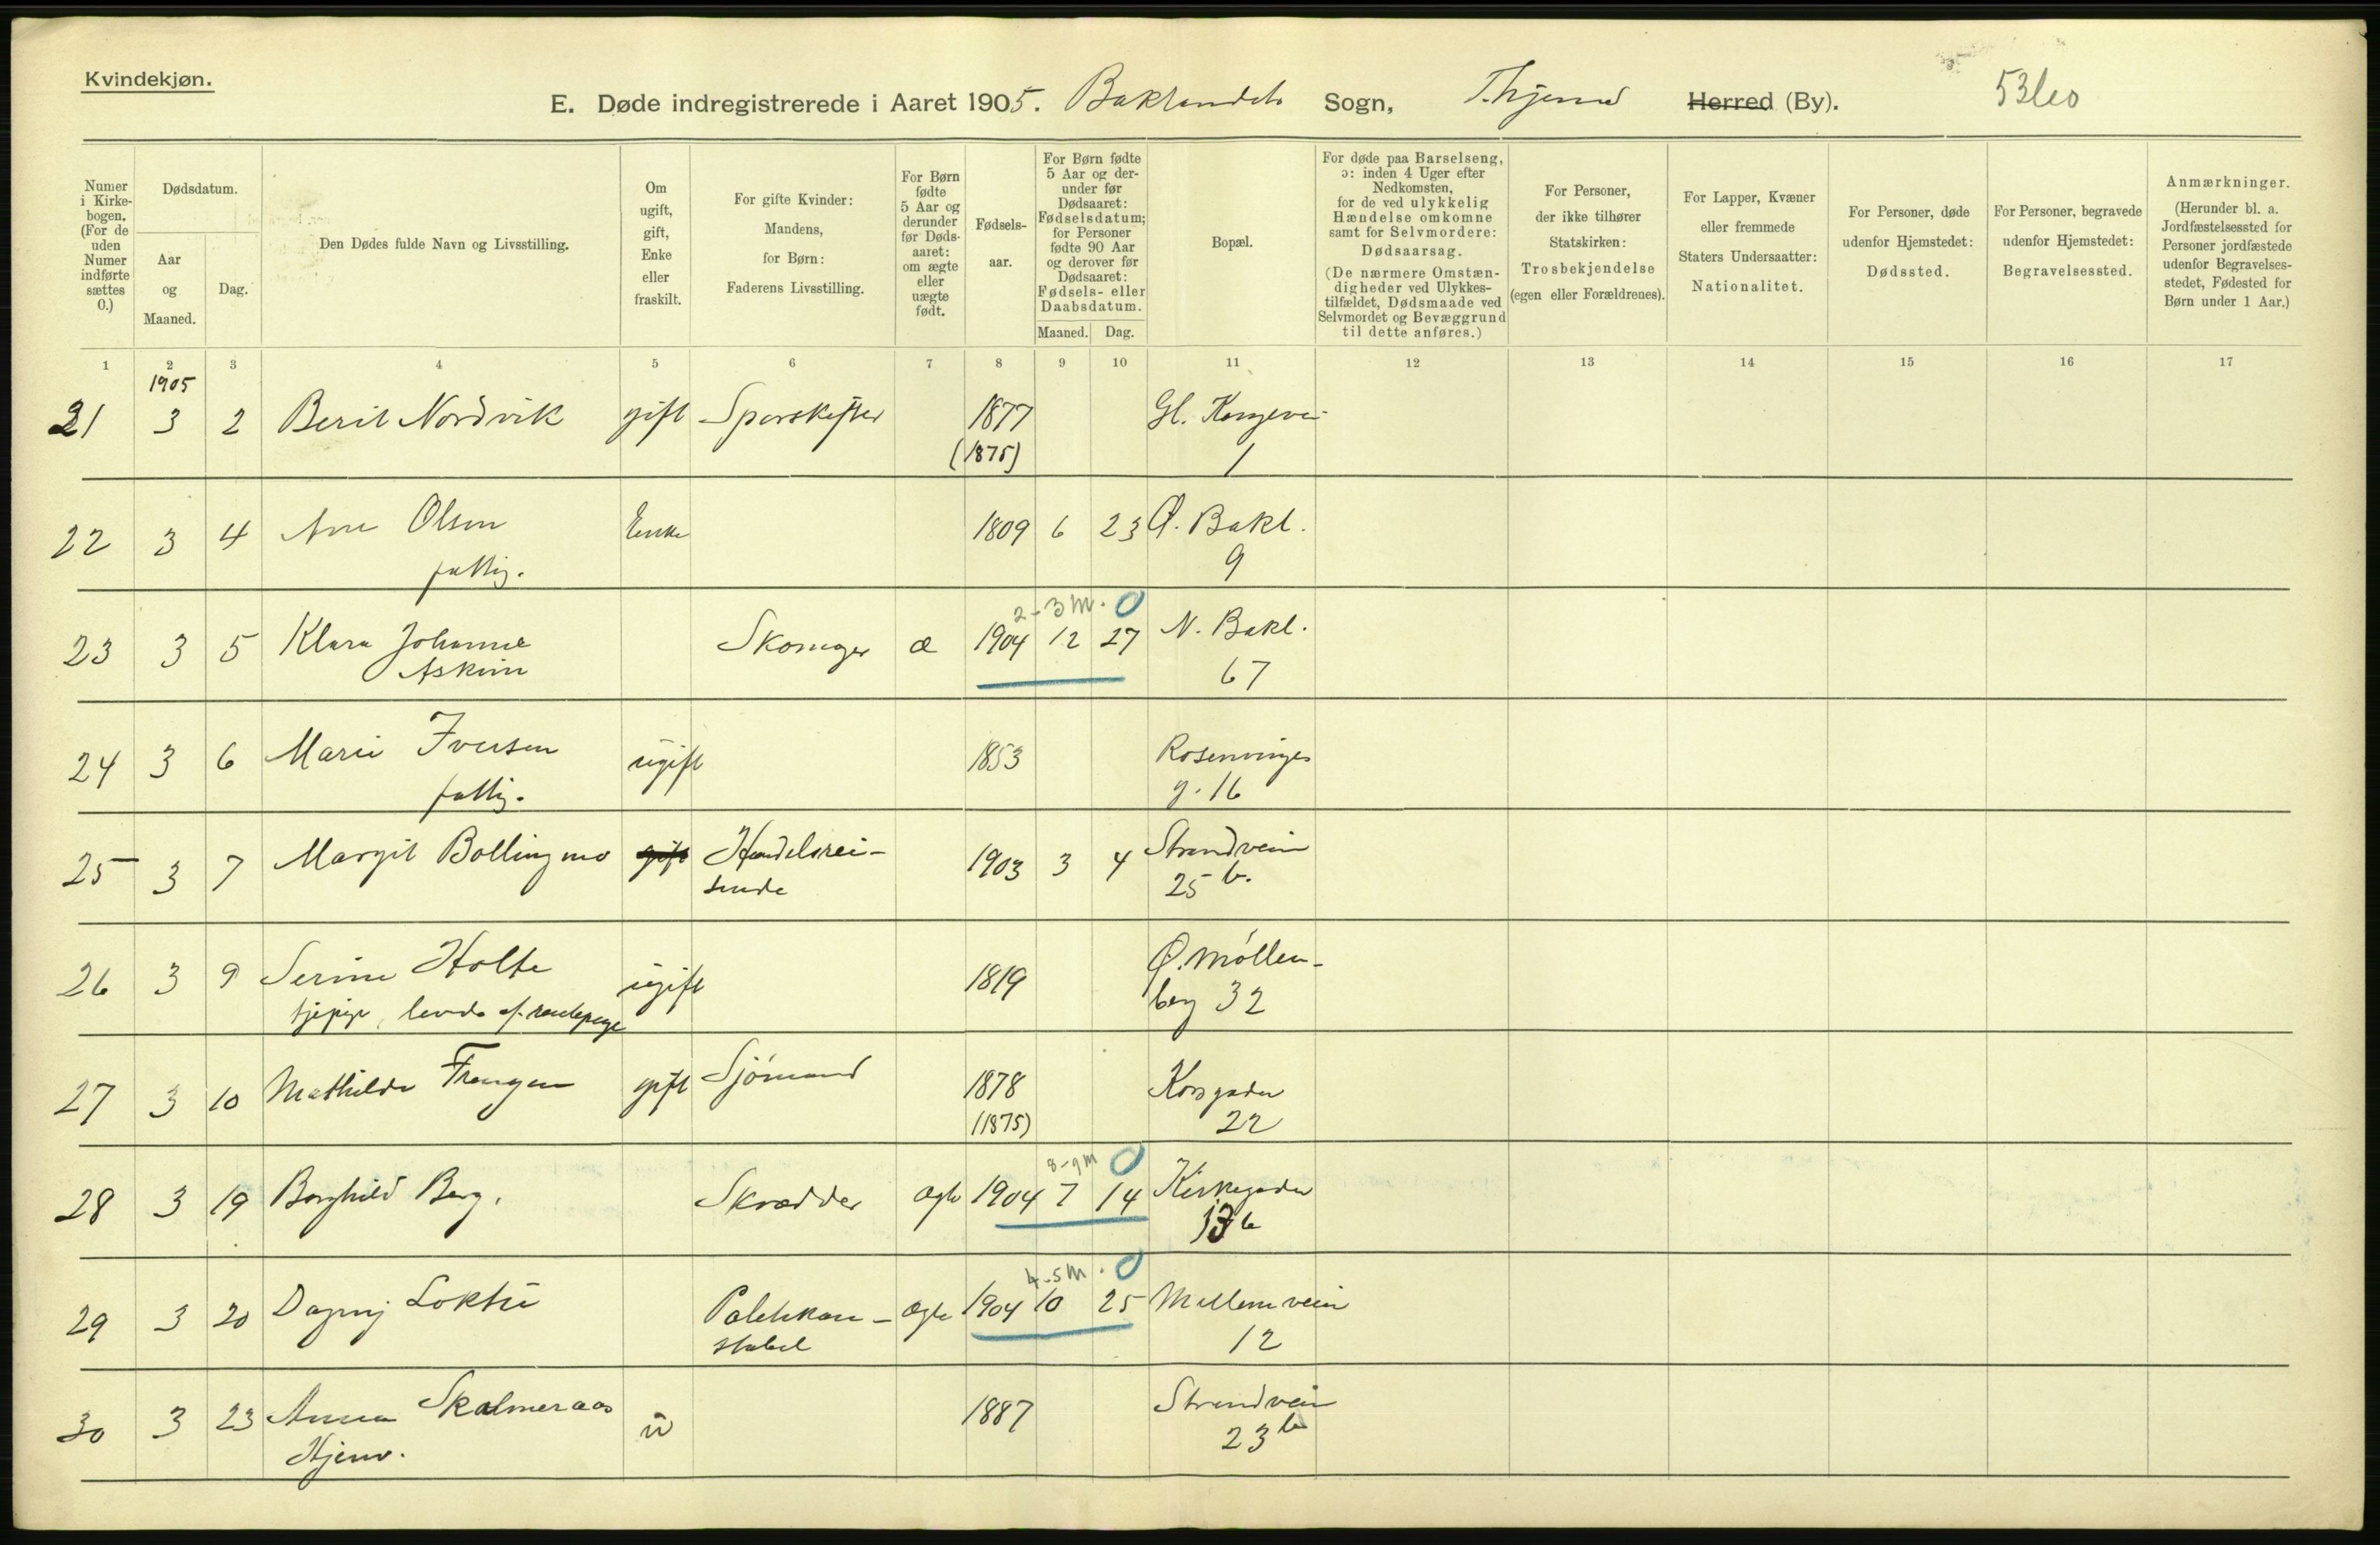 Kvindekjøn.
E. Døde indregistrerede i Aaret 1905. Baklandets Sogn, Thjem Herred (By).
Numer i Kirke-bogen. (For de uden Numer indførte sættes 0.)
Dødsdatum.
Aar og Maaned.
Dag.
Den Dødes fulde Navn og Livsstilling.
Om ugift, gift, Enke eller fraskilt.
For gifte Kvinder: Mandens, for Børn: Faderens Livsstilling.
For Børn fødte 5 Aar og derunder før Døds-aaret: om ægte eller uægte født.
Fødsels-aar.
For Børn fødte 5 Aar og der-under før Dødsaaret: Fødselsdatum; for Personer fødte 90 Aar og derover før Dødsaaret: Fødsels- eller Daabsdatum.
Maaned. Dag.
Bopæl.
For døde paa Barselseng, ɔ: inden 4 Uger efter Nedkomsten, for de ved ulykkelig Hændelse omkomne samt for Selvmordere: Dødsaarsag. (De nærmere Omstæn-digheder ved Ulykkes-tilfældet, Dødsmaade ved Selvmordet og Bevæggrund til dette anføres.)
For Personer, der ikke tilhører Statskirken: Trosbekjendelse (egen eller Forældrenes).
For Lapper, Kvæner eller fremmede Staters Undersaatter: Nationalitet.
For Personer, døde udenfor Hjemstedet: Dødssted.
For Personer, begravede udenfor Hjemstedet: Begravelsessted.
Anmærkninger. (Herunder bl. a. Jordfæstelsessted for Personer jordfæstede udenfor Begravelses-stedet, Fødested for Børn under 1 Aar.)
1 2 3 4 5 6 7 8 9 10 11 12 13 14 15 16 17
1905
21 3 2 Berit Nordvik gift Sporskifter 1877 Gl. Kongevei
(1875) 1
22 3 4 Ane Olsen Enke 1809 6 23 Ø. Bakl.
fattig. 9
2-3 M. 0
23 3 5 Klara Johanne Skomager æ 1904 12 27 N. Bakl.
Askim 67
24 3 6 Marie Iversen ugift 1853 Rosenvinges
fattig. g. 16
25 3 7 Margit Bollingmo gift Handelsrei- 1903 3 4 Strandveien
sende 25 b.
26 3 9 Serine Holte ugift 1819 Ø. Møllen-
tjpige, levde af rentepenge berg 32
27 3 10 Mathilde gift Sjómand 1878 Korsgaden
(1875) 22
8-9 M 0
28 3 19 Borghild Berg. Skrædder ægte 1904 7 14 Kirkegaden
13 b
4-5 M. 0
29 3 20 Dagny Loktu Politikon- ægte 1904 10 25 Mellemveien
stabel 12
30 3 23 Anna Skalmeraas u 1887 Strandveien
Hjem. 23 b